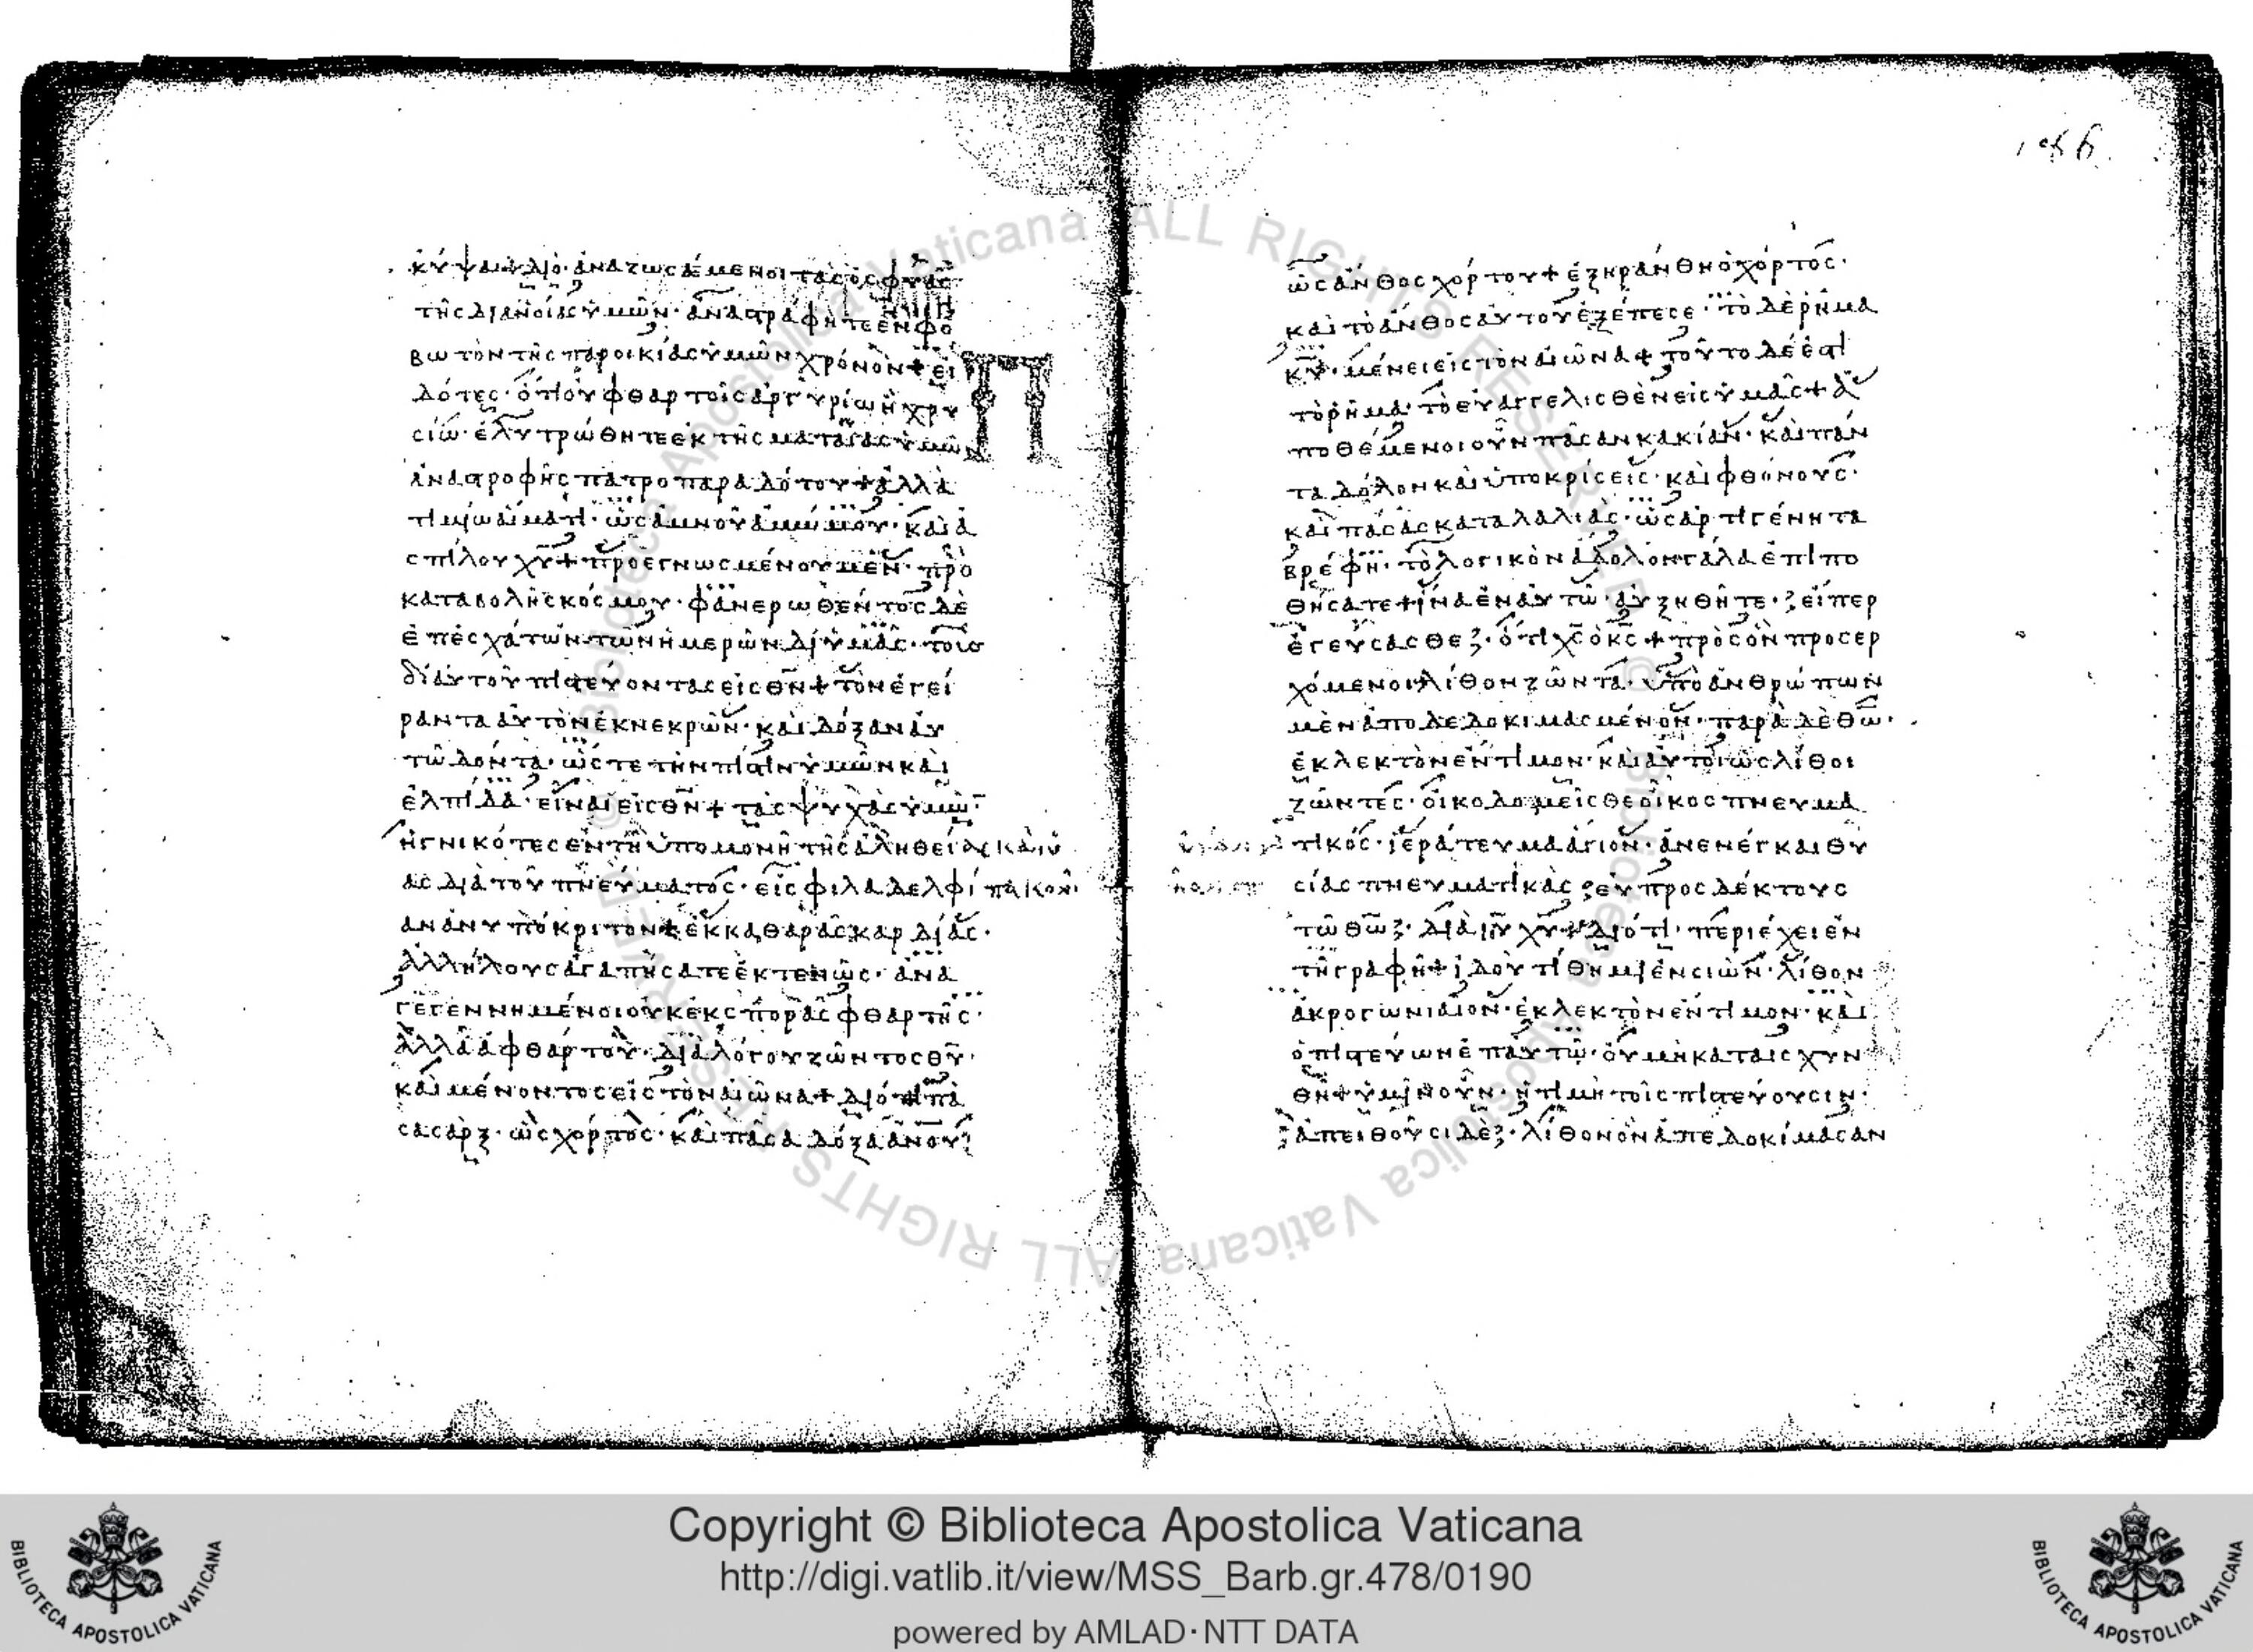 κύψαι + διὸ ἀναζωσάμενοι τὰς ὀσφύας
τῆς διανοίας ὑμῶν · ἀναστράφητε ἐν φό
βω τὸν τῆς παροικίας ὑμῶν χρόνον + εἰ
δότες · ὅτι οὐ φθαρτοῖς ἀργυρίω ἢ χρυ
σίω · ἐλυτρώθητε ἐκ τῆς ματαίας ὑμῶν
ἀναστροφῆς πατροπαραδότου + ἀλλὰ
τιμίω αἵματι · ὡς ἀμνοῦ ἀμώμου · καὶ ἀ
σπίλου χυ + προεγνωσμένου μὲν · πρὸ
καταβολῆς κόσμου · φανερωθέντος δὲ
ἐπ' ἐσχάτων τῶν ἡμερῶν δι' ὑμᾶς · τοὺς
δι' αὐτοῦ πιστεύοντας εἰς θν + τὸν ἐγεί
ραντα αὐτὸν ἐκ νεκρῶν · καὶ δόξαν αὐ
τῶ δόντα · ὥστε τὴν πίστιν ὑμῶν καὶ
ἐλπίδα · εἶναι εἰς θν + τὰς ψυχὰς ὑμῶ
ἡγνικότες ἐν τῆ ὑπομονῆ τῆς ἀληθείας
διὰ τοῦ πνεύματος · εἰς φιλαδελφί
αν ἀνυπόκριτον + ἐκ καθαρᾶς καρδίας ·
ἀλλήλους ἀγαπήσατε ἐκτενῶς · ἀνα
γεγεννημένοι οὐκ ἐκ σπορᾶς φθαρτῆς ·
ἀλλὰ ἀφθάρτου · διὰ λόγου ζῶντος θυ ·
καὶ μένοντος εἰς τὸν αἰῶνα + διότι πᾶ
σα σάρξ · ὡς χόρτος · καὶ πᾶσα δόξα ανου
ὡς ἄνθος χόρτου + ἐξηράνθη ὁ χόρτος ·
καὶ τὸ ἄνθος αὐτοῦ ἐξέπεσε · τὸ δὲ ῥῆμα
κυ · μένει εἰς τὸν αἰῶνα + τοῦτο δέ ἐστι
τὸ ῥῆμα · τὸ εὐαγγελισθὲν εἰς ὑμᾶς + ἀ
ποθέμενοι οὖν πᾶσαν κακίαν · καὶ πάν
τα δόλον καὶ ὑποκρίσεις · καὶ φθόνους ·
καὶ πάσας καταλαλιάς · ὡς ἀρτιγένητα
βρέφη · τὸ λογικὸν ἄδολον γάλα ἐπιπο
θήσατε + ἵνα ἐν αὐτῶ · αὐξηθῆτε · εἴπερ
ἐγεύσασθε · ὅτι χς ὁ κς + πρὸς ὃν προσερ
χόμενοι λίθον ζῶντα · ὑπὸ ἀνθρώπων
μὲν ἀποδεδοκιμασμένον · παρὰ δὲ θω ·
ἐκλεκτὸν ἔντιμον · καὶ αὐτοὶ ὡς λίθοι
ζῶντες · οἰκοδομεῖσθε οἶκος πνευμα
τικός · ἱεράτευμα ἅγιον · ἀνενέγκαι θυ
σίας πνευματικὰς εὐπροσδέκτους
τῶ θω · διὰ ιυ χυ + διότι · περιέχει ἐν
τῆ γραφῆ + ἰδοὺ τίθημι ἐν σιὼν · λίθον
ἀκρογωνιαῖον · ἐκλεκτὸν ἔντιμον · καὶ
ὁ πιστεύων ἐπ' αὐτῶ · οὐ μὴ καταισχυν
θῆ + ὑμῖν οὖν · ἡ τιμὴ τοῖς πιστεύουσιν ·
ἀπειθοῦσι δὲ · λίθον ὃν ἀπεδοκίμασαν
Copyright © Biblioteca Apostolica Vaticana
http://digi.vatlib.it/view/MSS_Barb.gr.478/0190
powered by AMLAD·NTT DATA
BIBLIOTECA APOSTOLICA VATICANA
BIBLIOTECA APOSTOLICA VATICANA